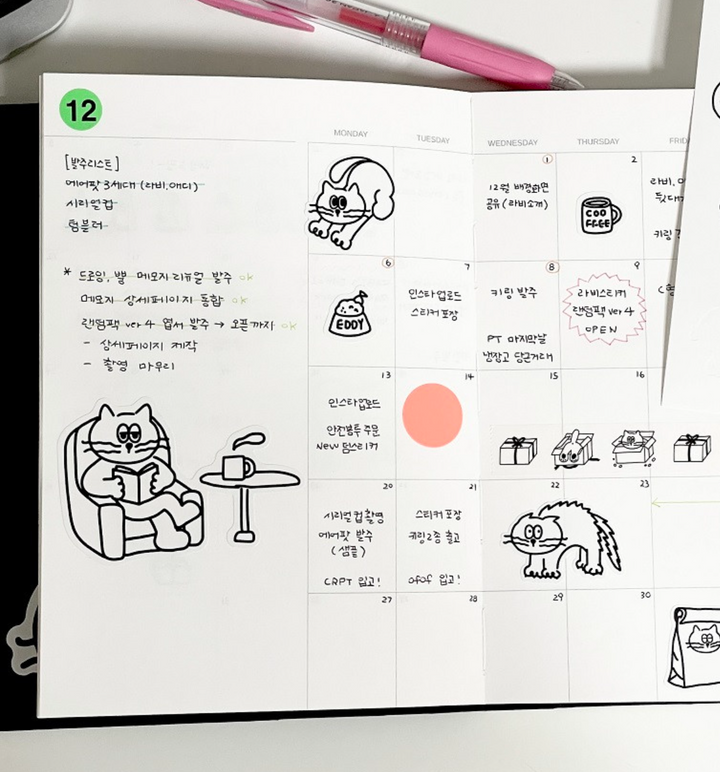 12
[발주리스트]
에어팟 3세대 (라비, 애디)
시리얼컵
텀블러
* 드로잉, 별 메모지 리뉴얼 발주 ok
메모지 상세페이지 통합 ok
랜덤팩 ver 4 엽서 발주 → 오픈까지 ok
- 상세페이지 제작
- 촬영 마무리
MONDAY
TUESDAY
WEDNESDAY
THURSDAY
FRID
1
12월 배경화면
공유 (라비소개)
2
COO
FFEE
라비, 
키링
6
EDDY
7
인스타 업로드
스티커 포장
8
키링 발주
PT 마지막날
냉장고 당근거래
9
라비스티커
랜덤팩 ver 4
OPEN
13
인스타 업로드
안전봉투 주문
New 덤스티커
14
15
16
20
시리얼컵 촬영
에어팟 발주
(샘플)
CRPT 입고!
21
스티커 포장
키링 2종 출고
ofof 입고!
22
23
27
28
29
30